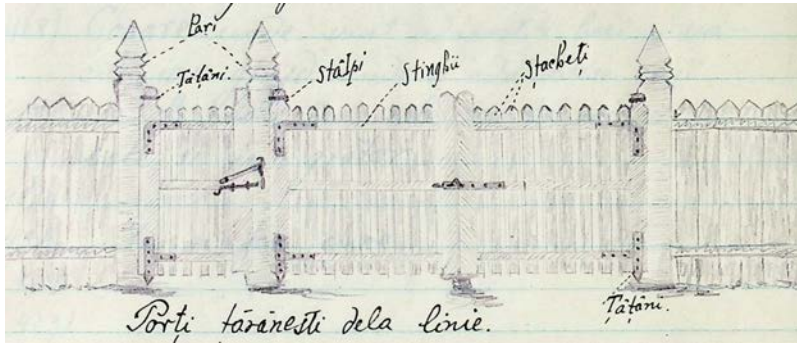 Pari
Țâțâni.
Stâlpi
Stinghii
Ștacheți
Țâțâni.
Porți tărănesti dela linie.